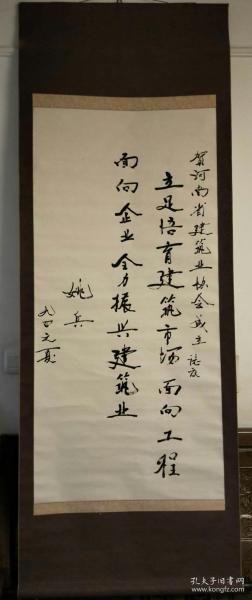 贺河南省建筑业协会成立志庆
立足培育建筑市场面向工程
面向企业全力振兴建筑业
姚兵
九四元夏
孔夫子旧书网
www.kongfz.com